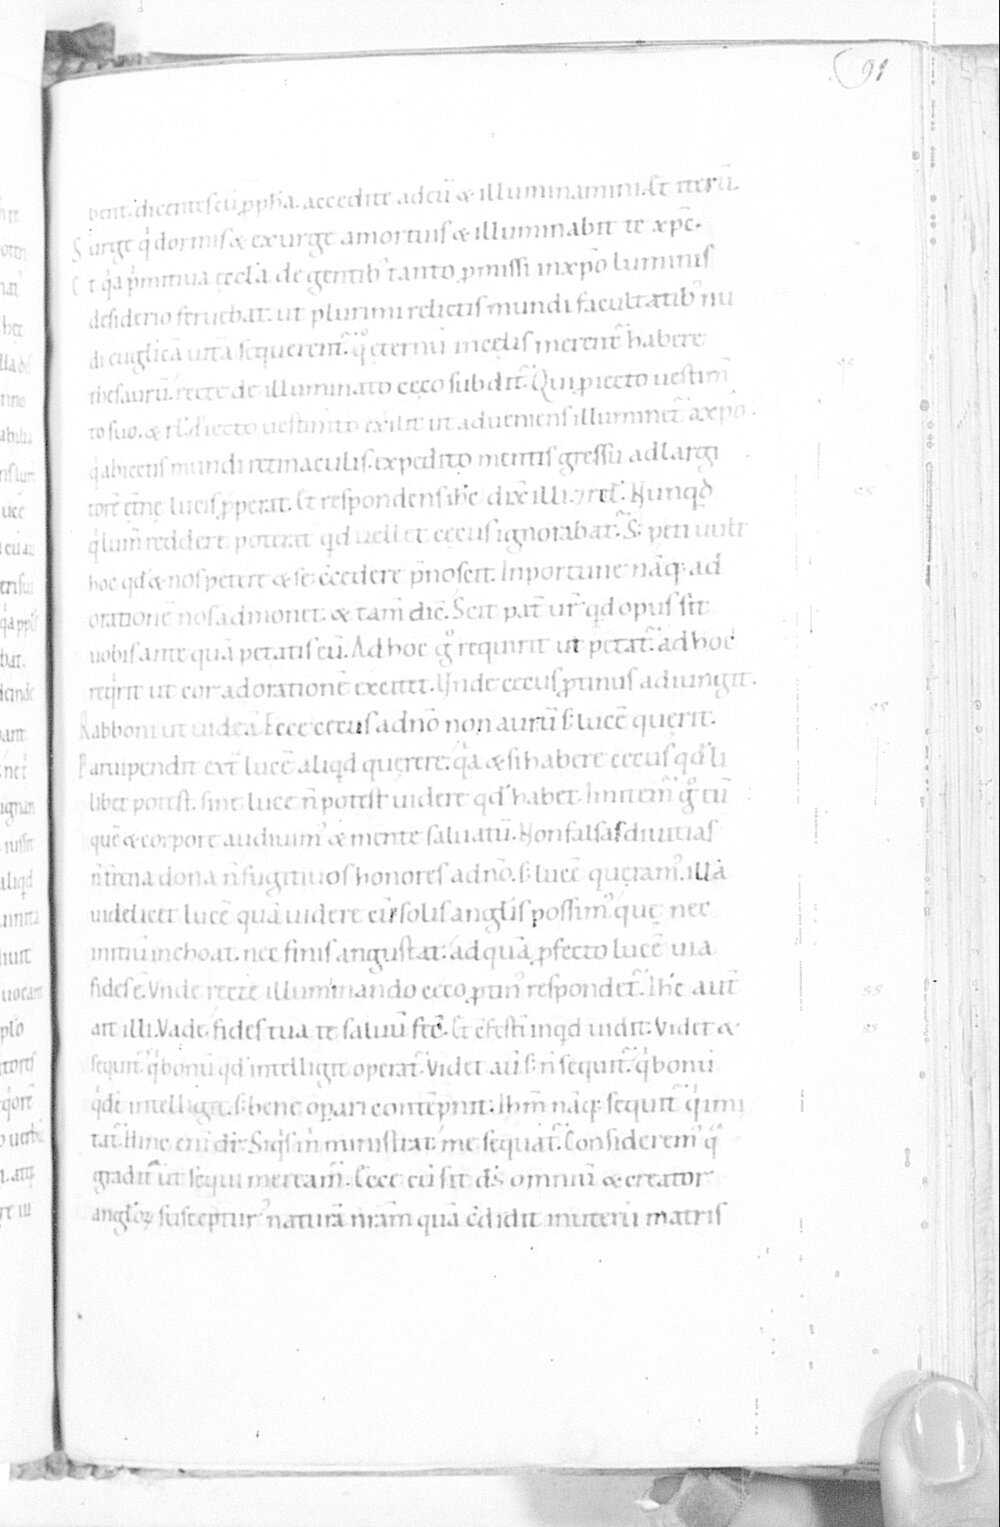 91
bent. dicentes cū ꝓpha. accedite ad eū & illuminamini. Et iterū.
Surge q̇ dormis & exurge a mortuis & illuminabit te xp̄c.
Et q̇a ṗmitiua ęccl̄a de gentib; tanto ꝓmissi in xp̄o luminis
desiderio feruebat. ut plurimi relictis mundi facultatib; nu
di euglicā uitā sequerent̄. q̊ ęternū in cęlis merent̄ habere
thesaurū. recte de illuminato ceco subdit̄. Qui ꝓiecto uestim̄
to suo. & rł. Eiecto uestim̄to exilit ut adueniens illuminet̄ a xp̄o.
q̇ abiectis mundi retinaculis. expedito mentis gressu ad largi
torē ęt̄ne lucis ꝓperat. Et respondens ih̄c dix̄ illi. 7 rel. Nunqd̄
q̇ lum̄ reddere poterat qd uellet cecus ignorabat. S; peti uult
hoc qd & nos petere & se c̄cedere p̄noscit. Inportune nāq; ad
orationē nos admonet. & tam̄ dic̄. Scit pat̄ ur̄ qd opus sit
uobis ante quā petatis eū. Ad hoc g̊ requirit ut petat̄. ad hoc
req̇rit ut cor ad orationē excitet. Unde cecus ꝓtinus adiungit.
Rabboni ut uideā. Ecce cecus a dn̄o non aurū s; lucē querit.
Paruipendit ext̄ lucē aliqd querere. q̇a & si habere cecus qd li
libet potest. sine luce n̄ potest uidere qd habet. Imitem̄ g̊ eū
quē & corpore audiuim; & mente saluatū. Non falsas diuitias
n̄ t̄rena dona n̄ fugitiuos honores a dn̄o. s; lucē queram; illā
uidelicet lucē quā uidere cū solis angl̄is possim; quę nec
initiū inchoat. nec finis angustat. ad quā ꝓfecto lucē uia
fides ē. Vnde recte illuminando ceco ꝓtin; respondet̄. Ih̄c aut̄
ait illi. Vade. fides tua te saluū fec̄. Et c̄festī inqd uidit. Videt &
sequit̄ q̇ bonū qd intelligit operat̄. Videt aū s; n̄ sequit̄. q̇ bonū
q̇de intelligit. s; bene opari contēpnit. Ihm̄ nāq; sequit̄ q̇ imi
tat̄. Hinc eni dr̄. Siq̇s m̄ ministrat me sequat̄. Considerem; q̊
gradit̄ ut sequi meream̄. Ecce cū sit ds̄ omniū & creator
angl̄oꝝ suscepturꝰ naturā nr̄am quā c̄didit in uterū matris